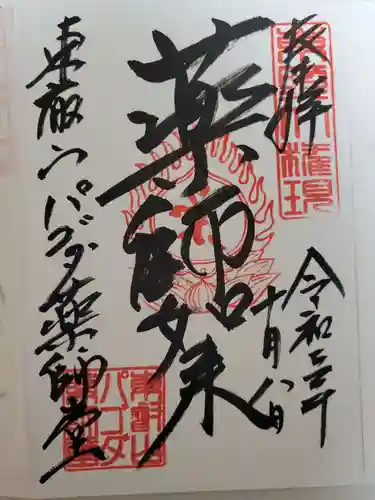 奉拝
薬師如来
令和三年
十月八日
東叡山パゴダ薬師堂
東叡山
パゴダ
薬師堂